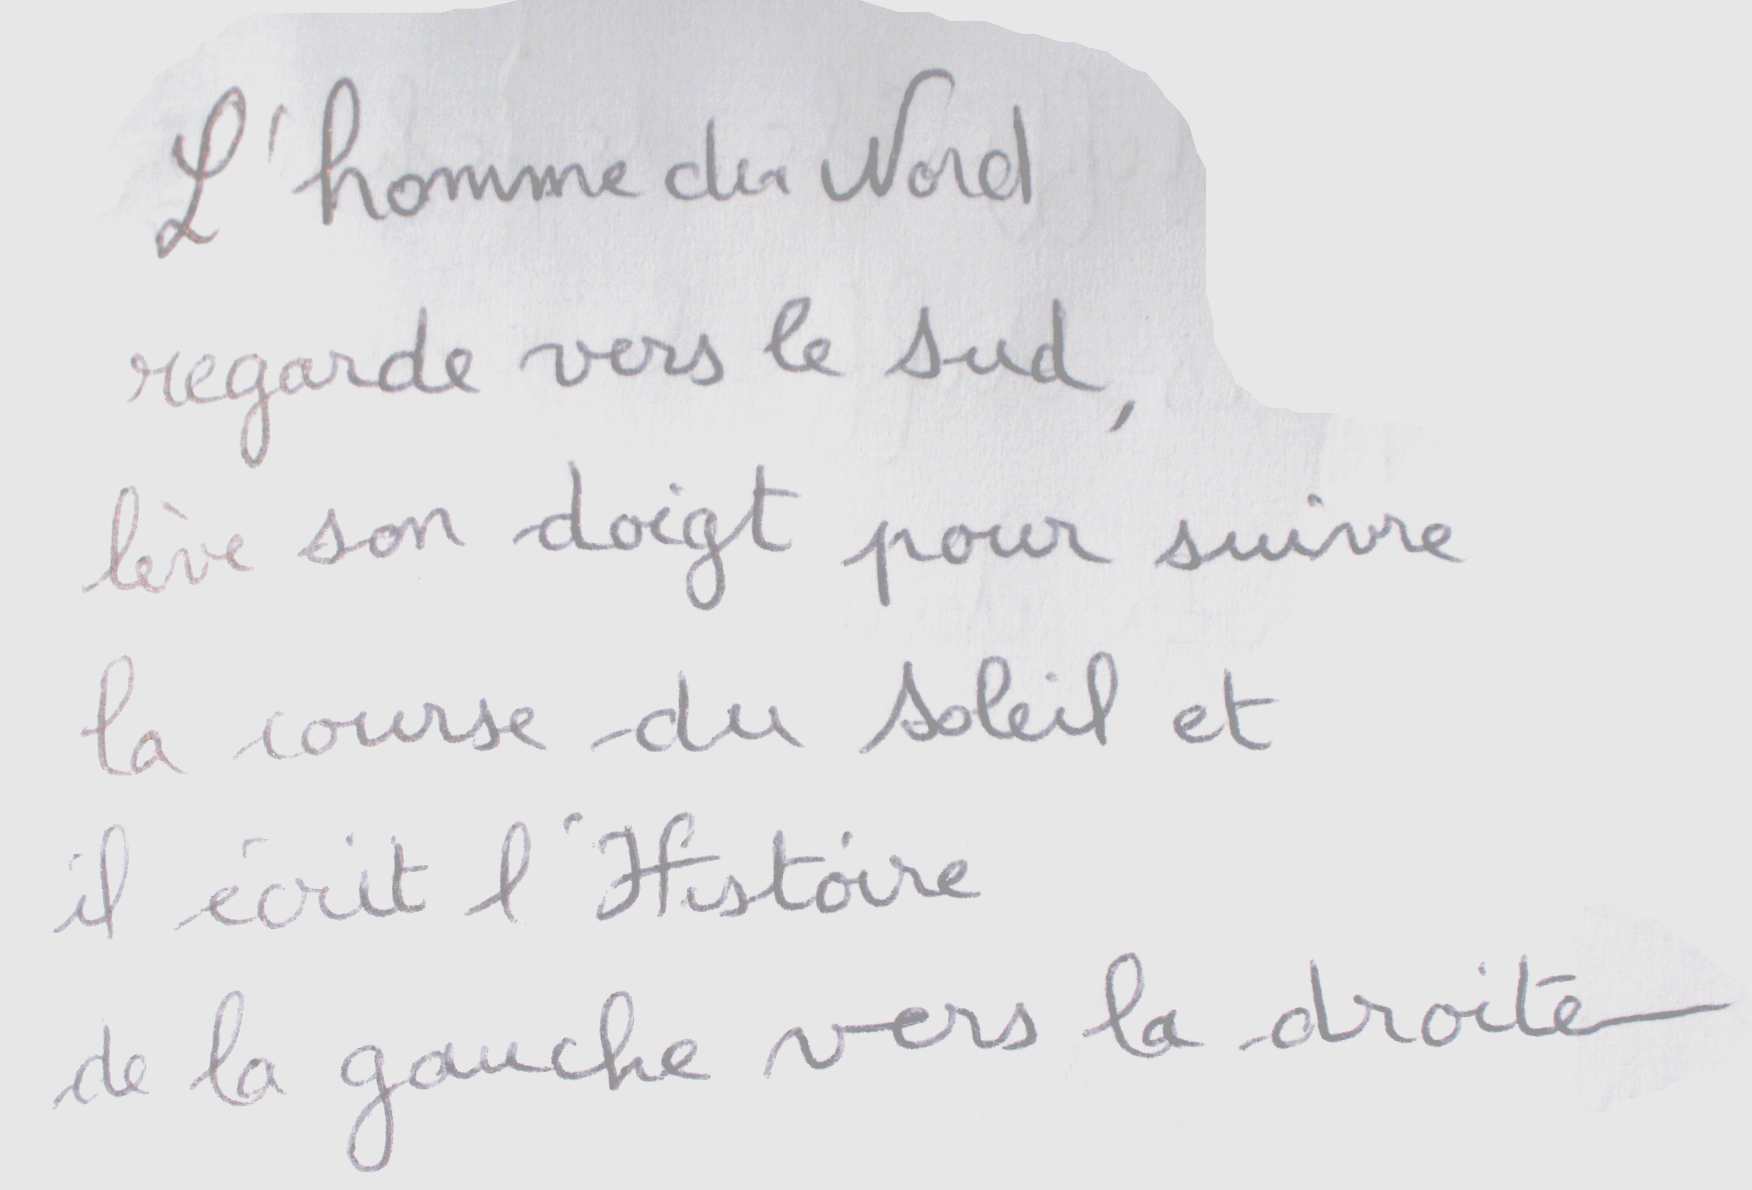 L'homme du Nord
regarde vers le sud,
lève son doigt pour suivre
la course du soleil et
il écrit l'Histoire
de la gauche vers la droite